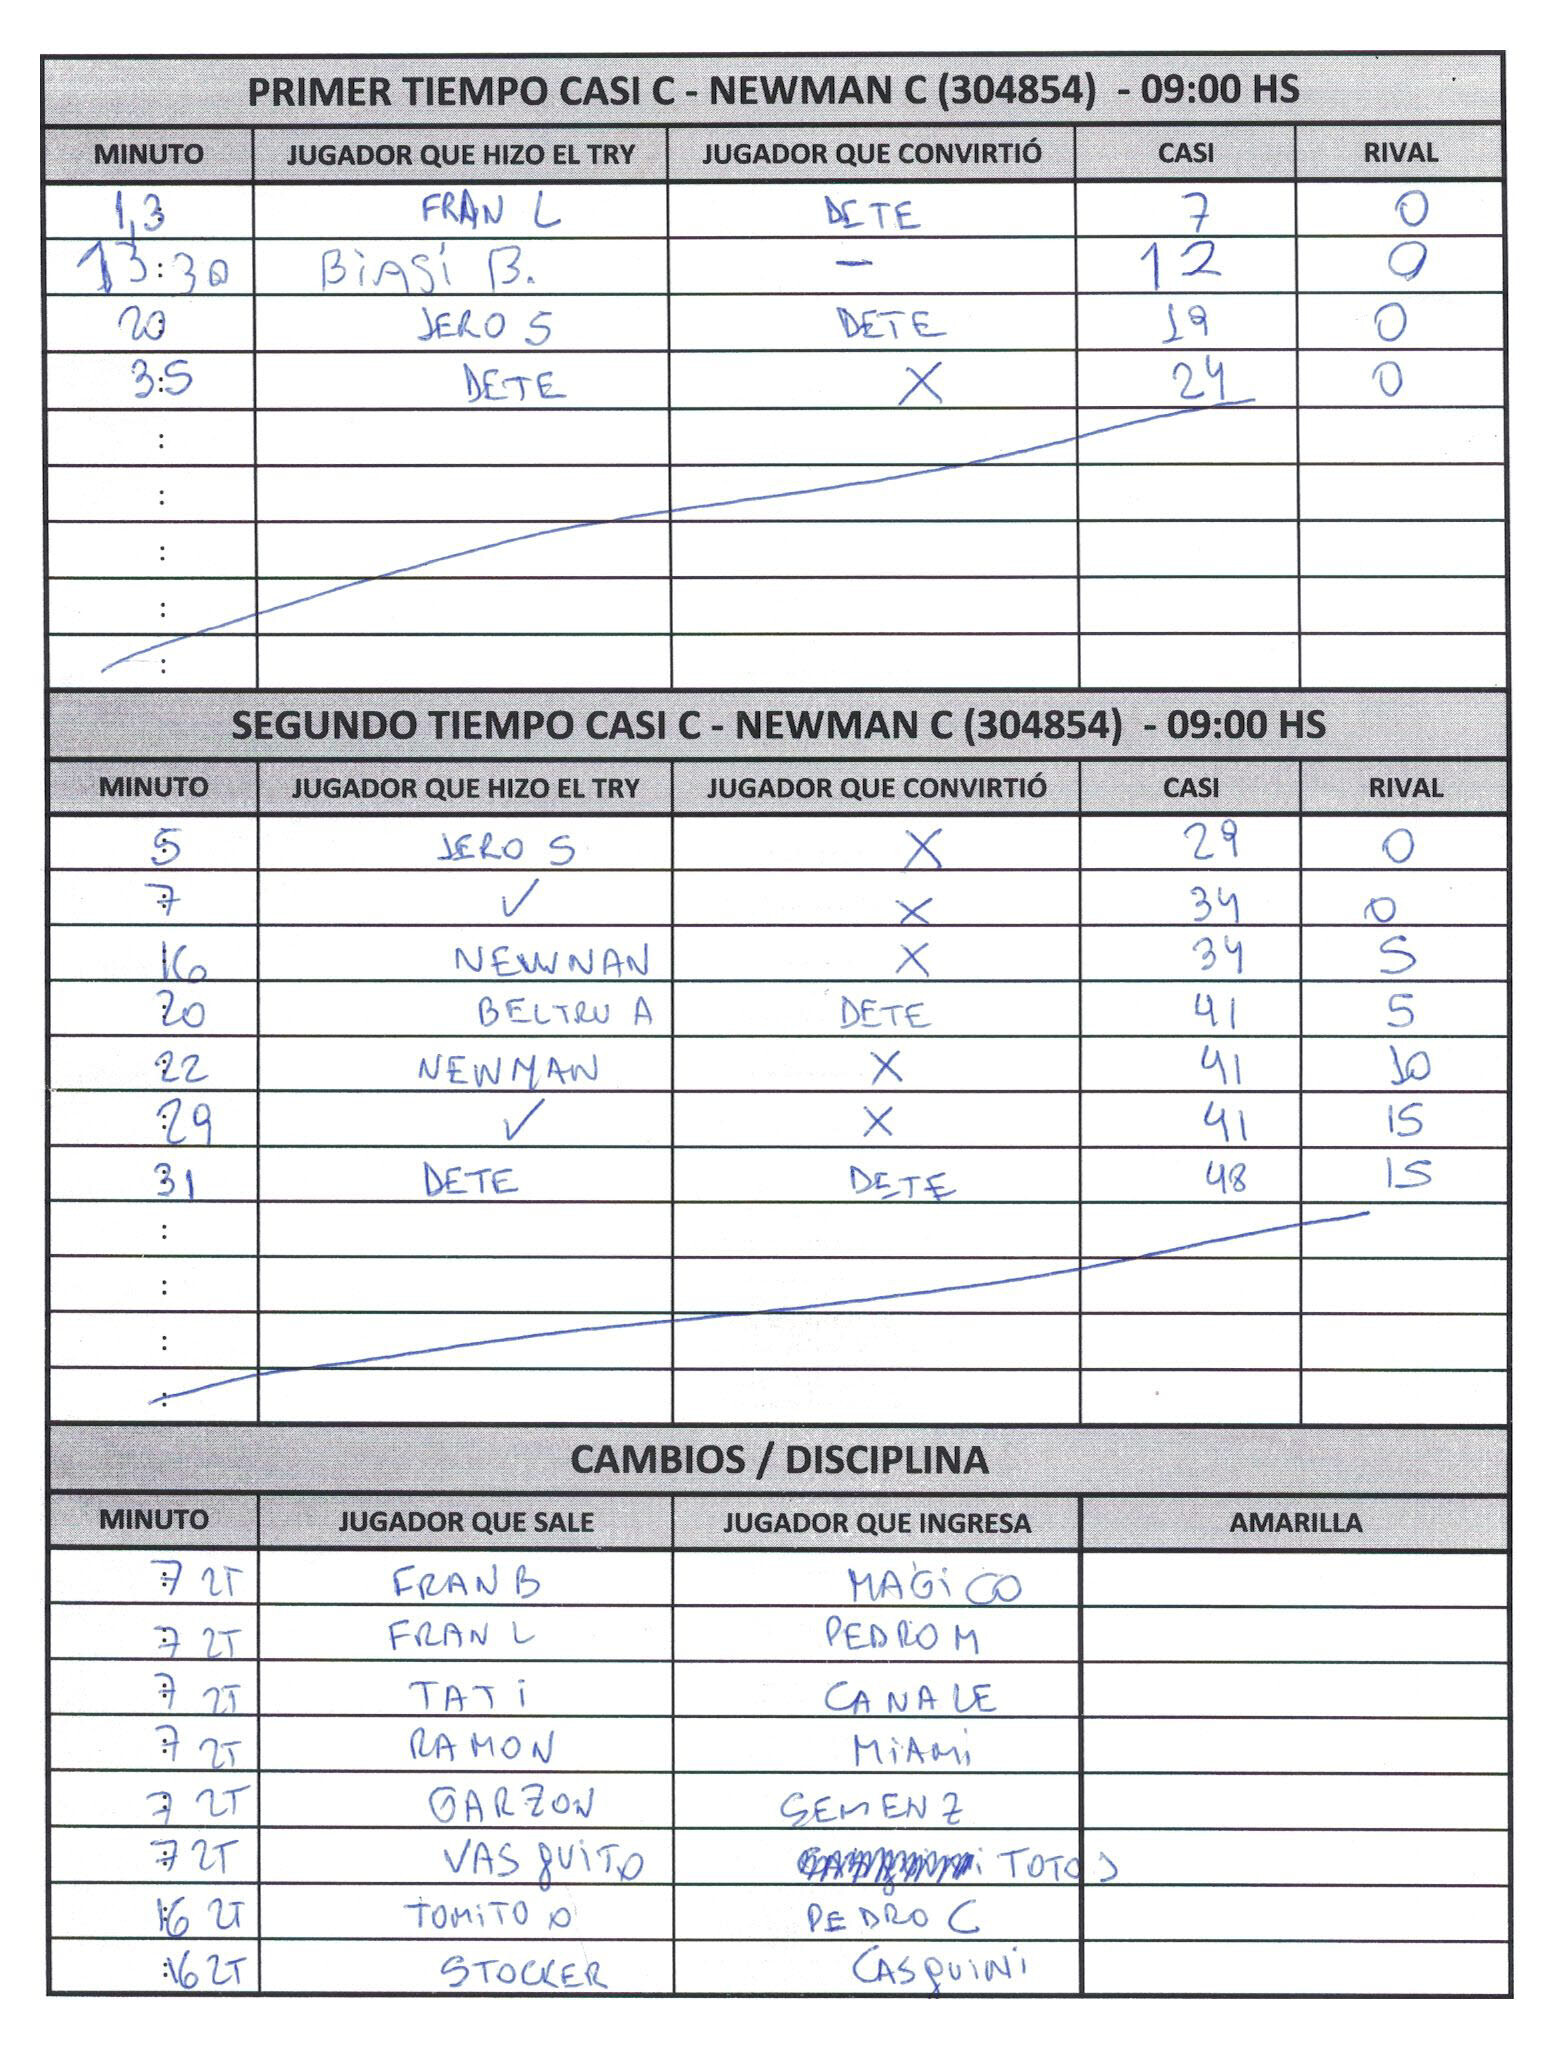 PRIMER TIEMPO CASI C - NEWMAN C (304854) - 09:00 HS
MINUTO JUGADOR QUE HIZO EL TRY JUGADOR QUE CONVIRTIÓ CASI RIVAL
1,3 FRAN L DETE 7 0
13:30 BiASi B. - 12 0
20 JERO S DETE 19 0
3:5 DETE X 24 0
:
:
:
:
:
SEGUNDO TIEMPO CASI C - NEWMAN C (304854) - 09:00 HS
MINUTO JUGADOR QUE HIZO EL TRY JUGADOR QUE CONVIRTIÓ CASI RIVAL
5 JERO S X 29 0
7 ✓ X 34 0
16 NEWNAN X 34 5
20 BELTRU A DETE 41 5
22 NEWMAN X 41 10
29 ✓ X 41 15
31 DETE DETE 48 15
:
:
:
:
CAMBIOS / DISCIPLINA
MINUTO JUGADOR QUE SALE JUGADOR QUE INGRESA AMARILLA
7 2T FRAN B MAGiCO
7 2T FRAN L PEDRO M
7 2T TATi CANALE
7 2T RAMON MiAMi
7 2T GARZON SEMENZ
7 2T VASQUITO TOTO J
16 2T TOMiTO O PEDRO C
16 2T STOCKER CASQUINI